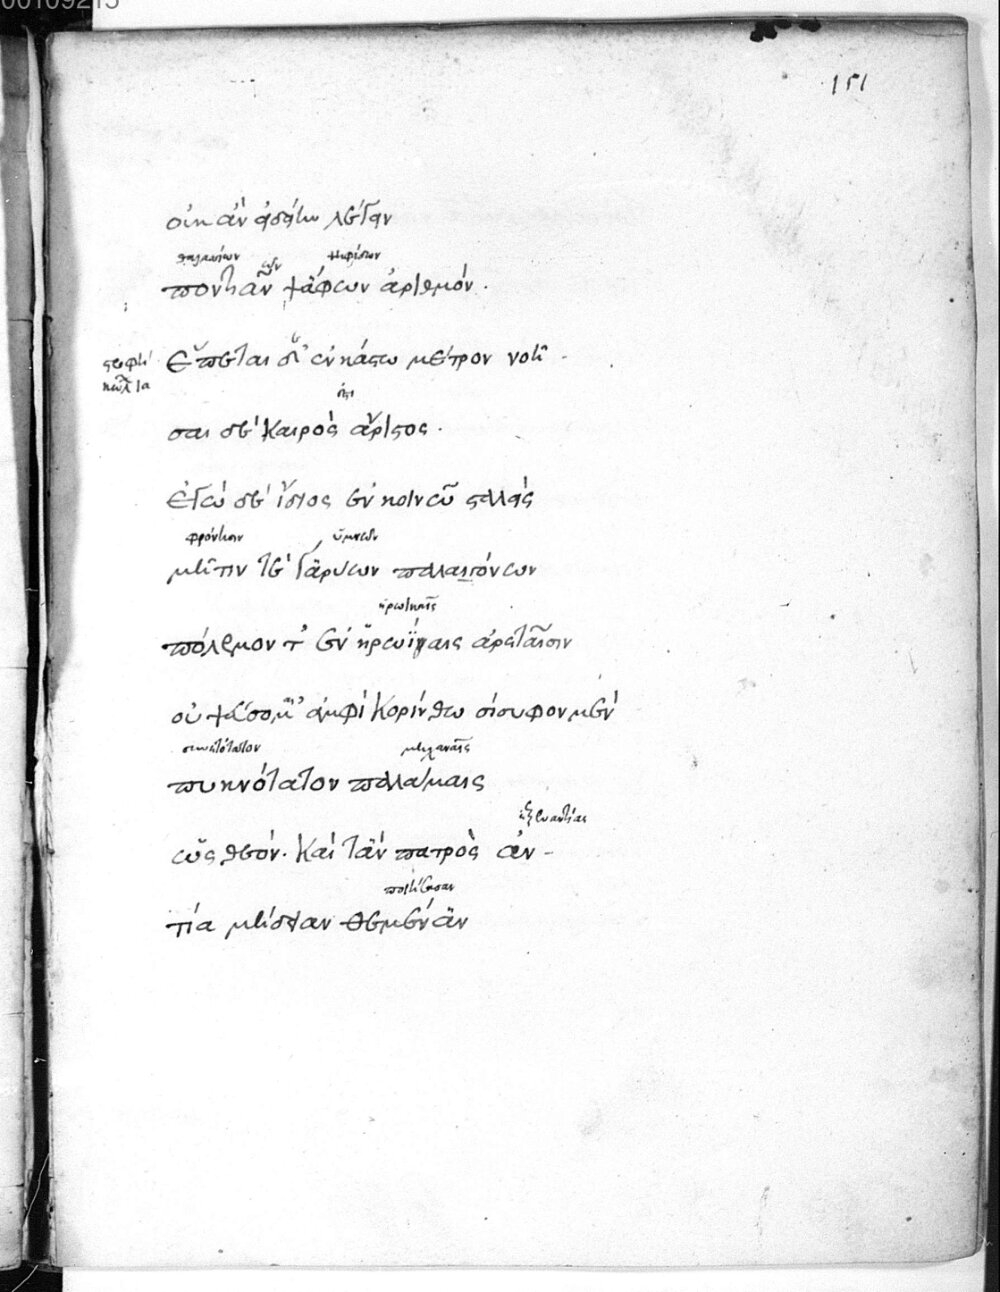 00109215
151
οὐκ ἂν εἰδείην λέγειν
θαλασσίων ψηφίδων
ποντιᾶν ψάφων ἀριθμόν.
στροφὴ
κώλ ια
Ἕπεται δ' ἐν ἑκάστω μέτρον νοῆ-
σαι δὲ καιρὸς ἄριστος.
ἐγὼ δὲ ἴδιος ἐν κοινῶ σταλεὶς
φρόνησιν
μῆτίν τε γαρύων παλαιγόνων
ἡρωϊκαῖς
πόλεμόν τ' ἐν ἡρωΐναις ἀρεταῖσιν
οὐ ψεύσομ' ἀμφὶ Κορίνθω σίσυφον μὲν
συνετώτατον μηχαναῖς
πυκνότατον παλάμαις
ἐξεναντίας
ὡς θεόν. Καὶ τὰν πατρὸς ἀν-
ποιήσασαν
τία μήδειαν θεμέναν